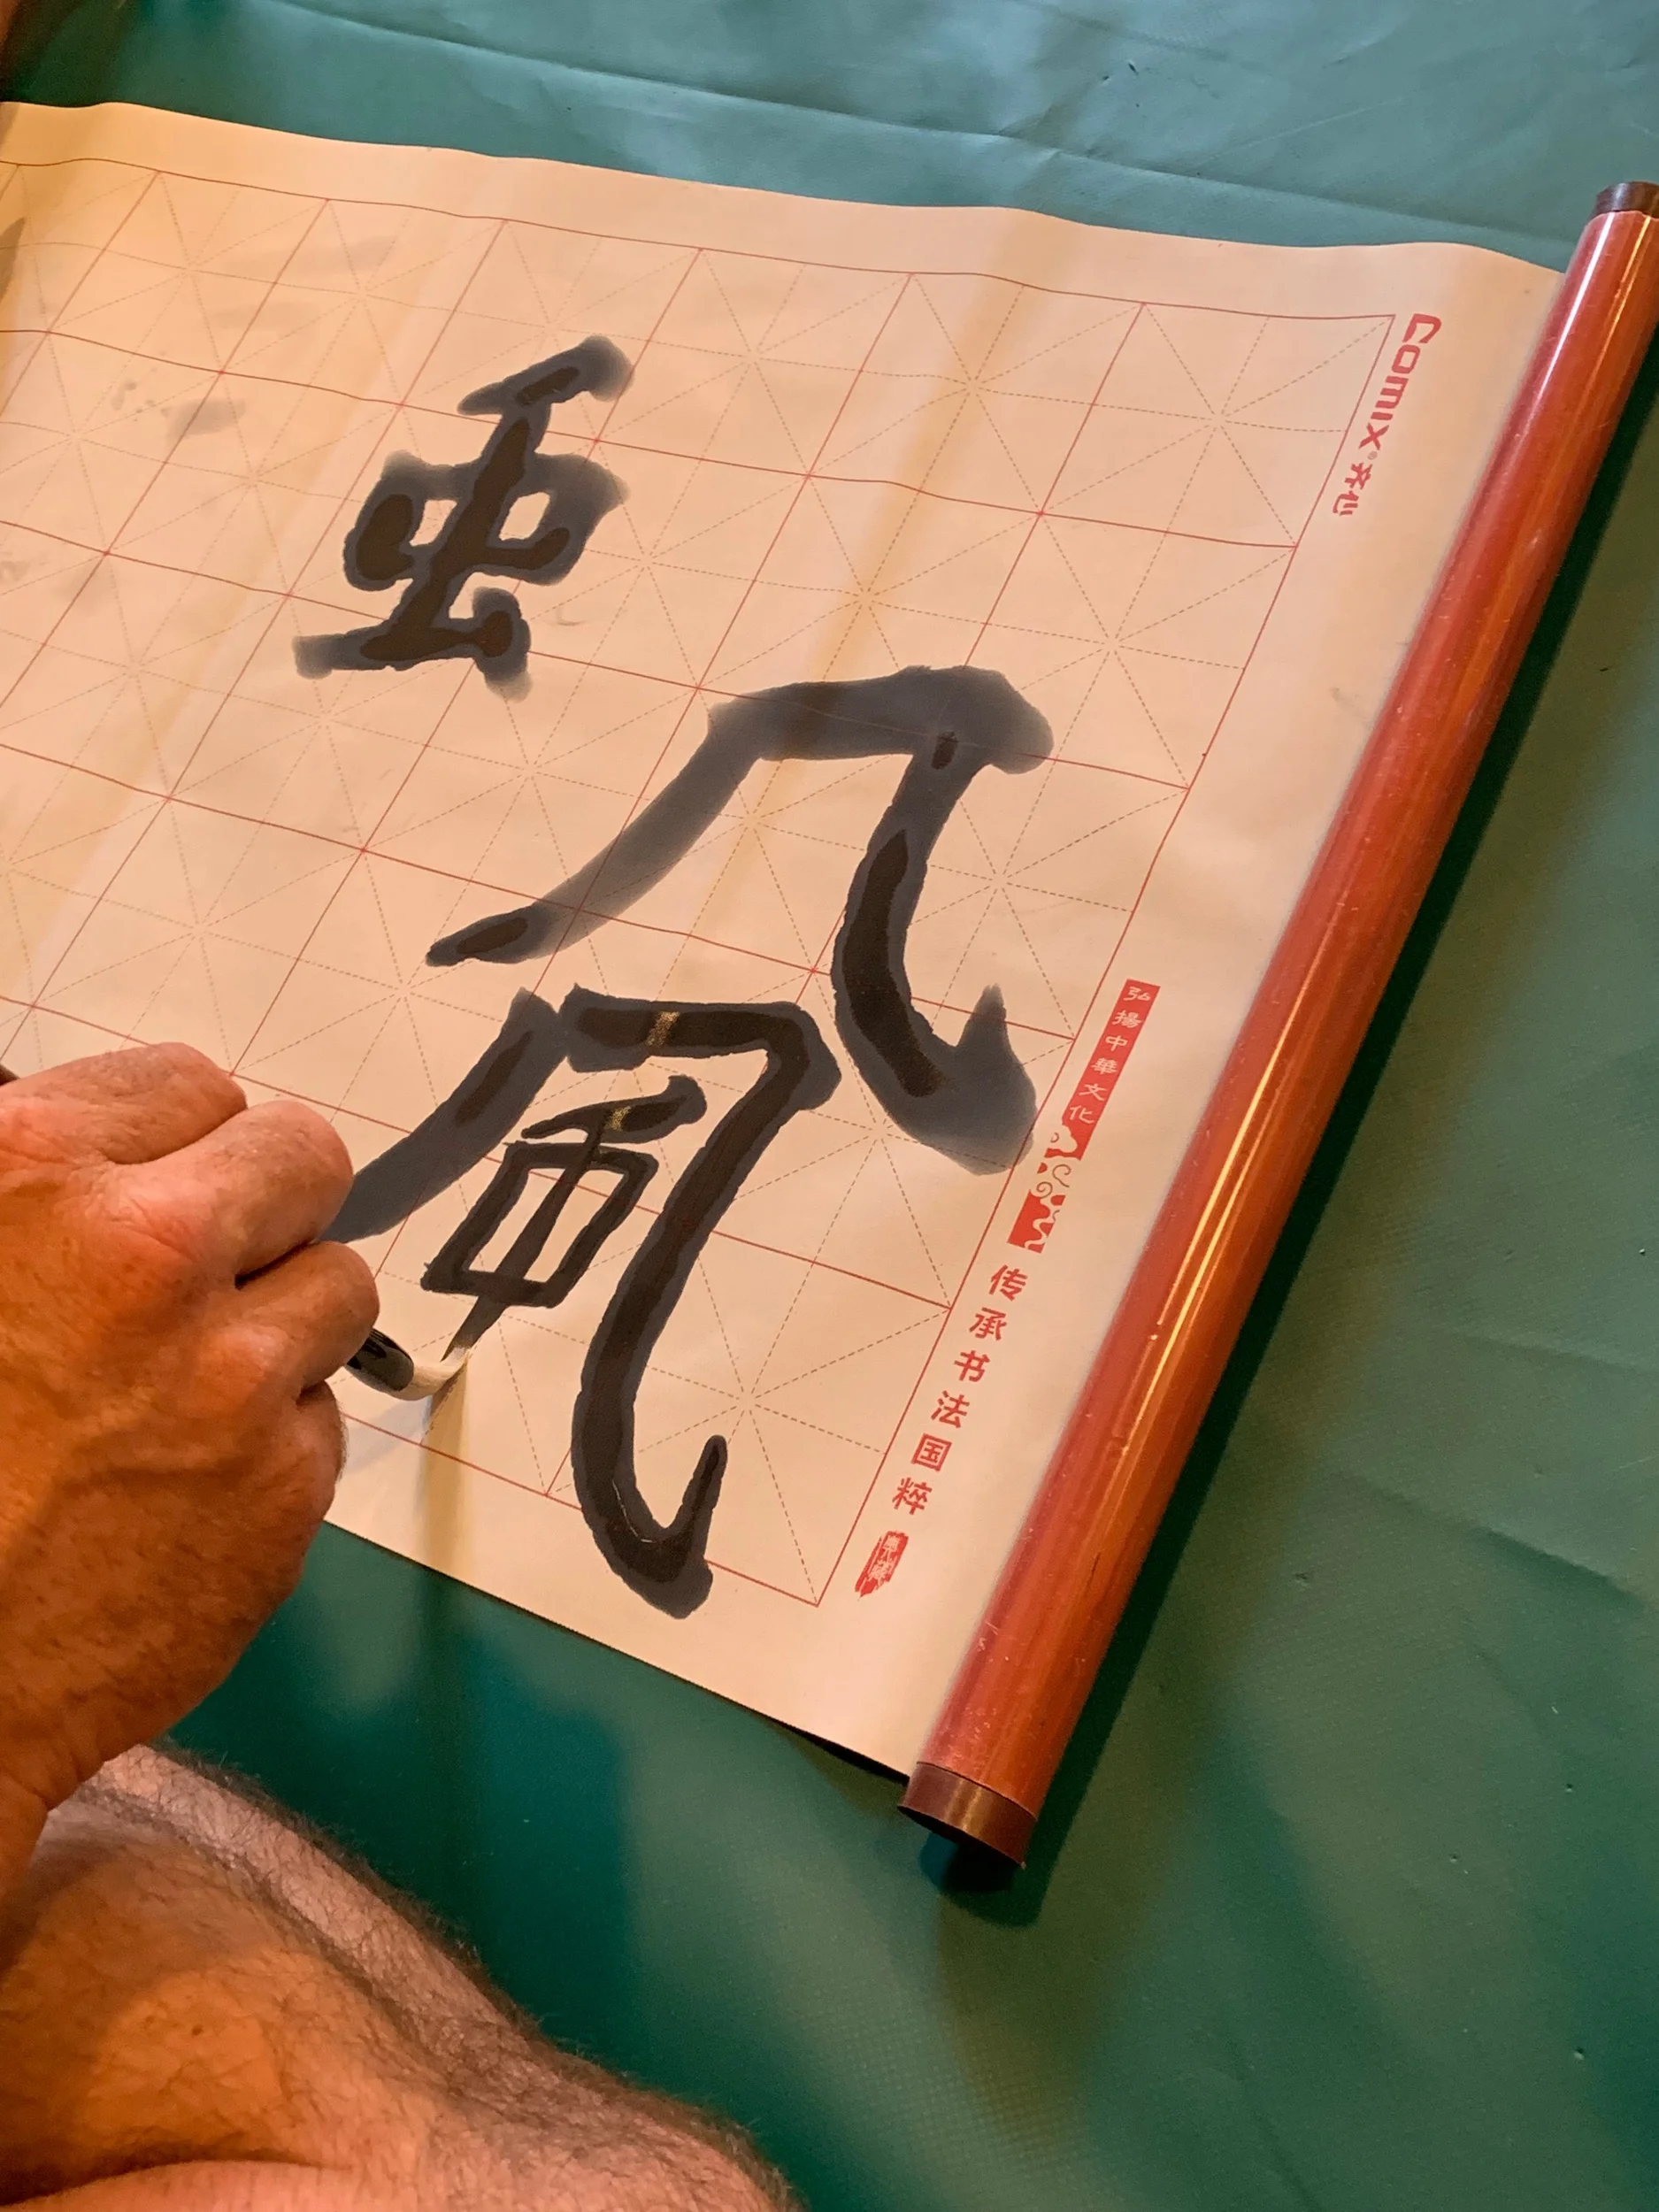 Comix® 齐心
弘揚中華文化
传承书法国粹
几
風